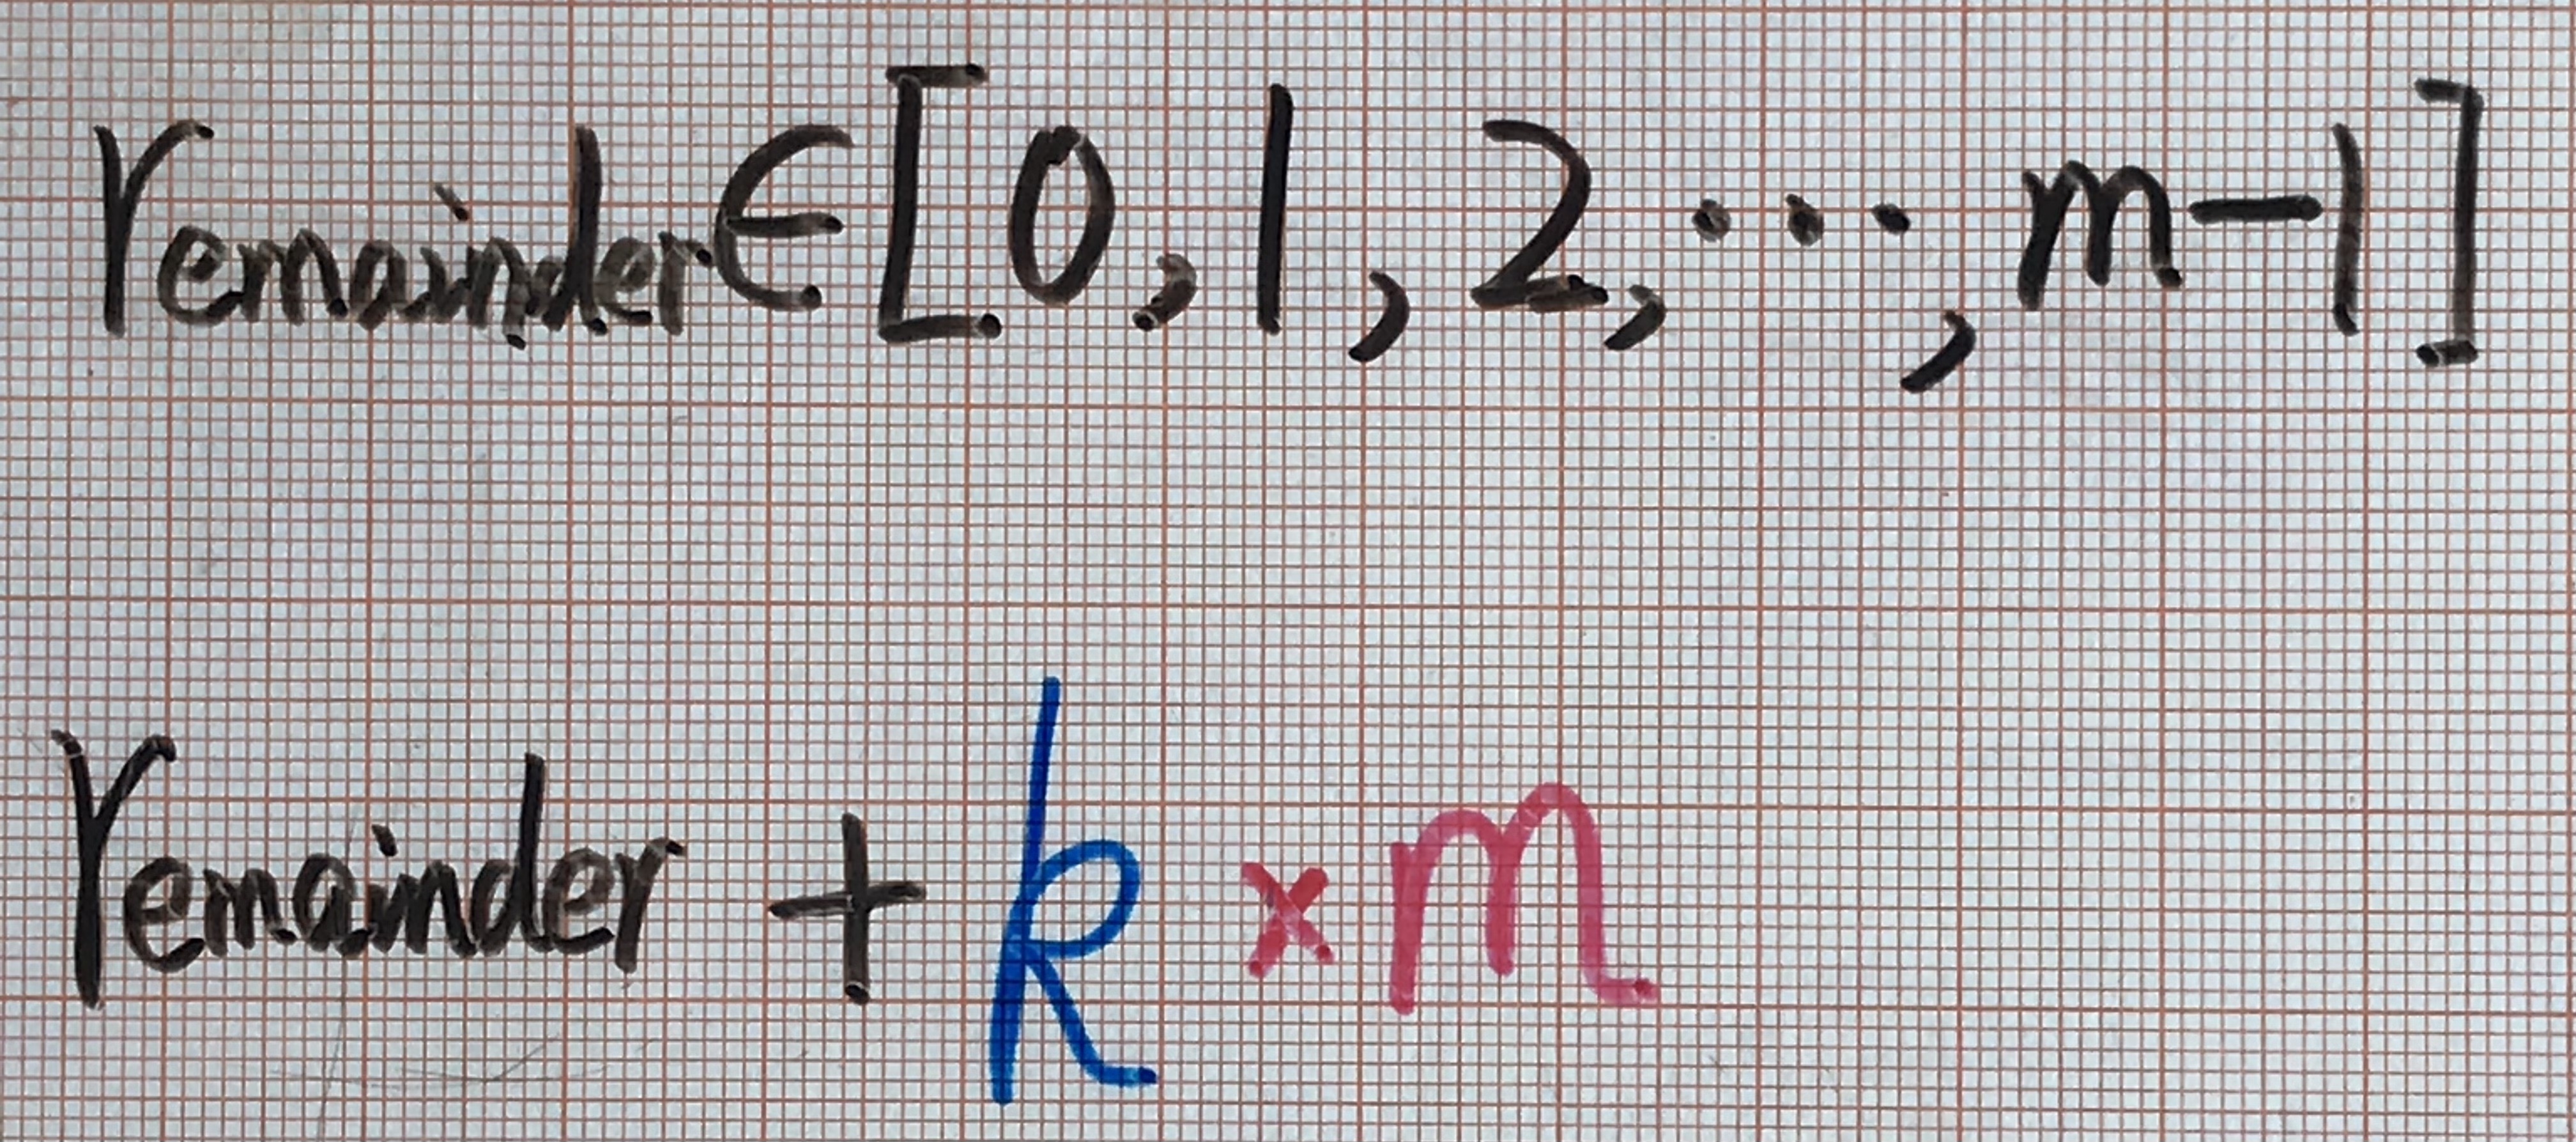 remainder∈[0,1,2,...,m-1]
remainder + k × m